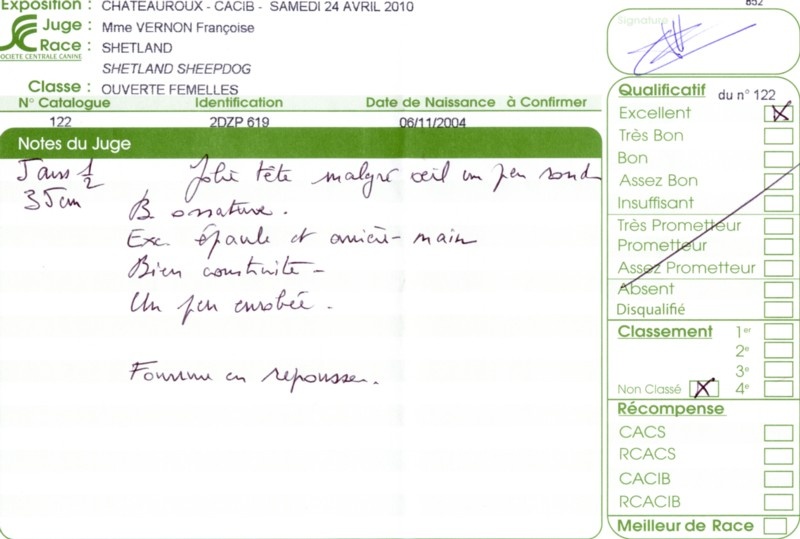 Exposition : CHATEAUROUX - CACIB - SAMEDI 24 AVRIL 2010
852
Juge : Mme VERNON Françoise
Race : SHETLAND
SOCIETE CENTRALE CANINE
SHETLAND SHEEPDOG
Classe : OUVERTE FEMELLES
N° Catalogue Identification Date de Naissance à Confirmer
122 2DZP 619 06/11/2004
Notes du Juge
5 ans 1/2 Jolie tête malgré œil un peu rond
35 cm
B ossature.
Exc épaule et arrière-main
Bien construite -
Un peu enrobée.
Fourrure en repousse.
Signature
Qualificatif du n° 122
Excellent X
Très Bon
Bon
Assez Bon
Insuffisant
Très Prometteur
Prometteur
Assez Prometteur
Absent
Disqualifié
Classement 1er
2e
3e
Non Classé X 4e
Récompense
CACS
RCACS
CACIB
RCACIB
Meilleur de Race